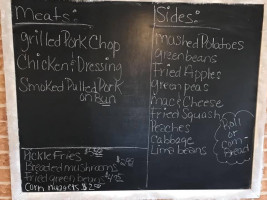 Meats:
grilled Pork Chop
Chicken & Dressing
Smoked Pulled Pork
on Bun
Pickle Fries
Breaded mushrooms
Fried green beans
Corn nuggets $2.00
Sides:
mashed Potatoes
green beans
Fried Apples
green peas
mac & Cheese
Fried Squash
Peaches
Cabbage
Lima beans
Roll
or
Corn-
Bread